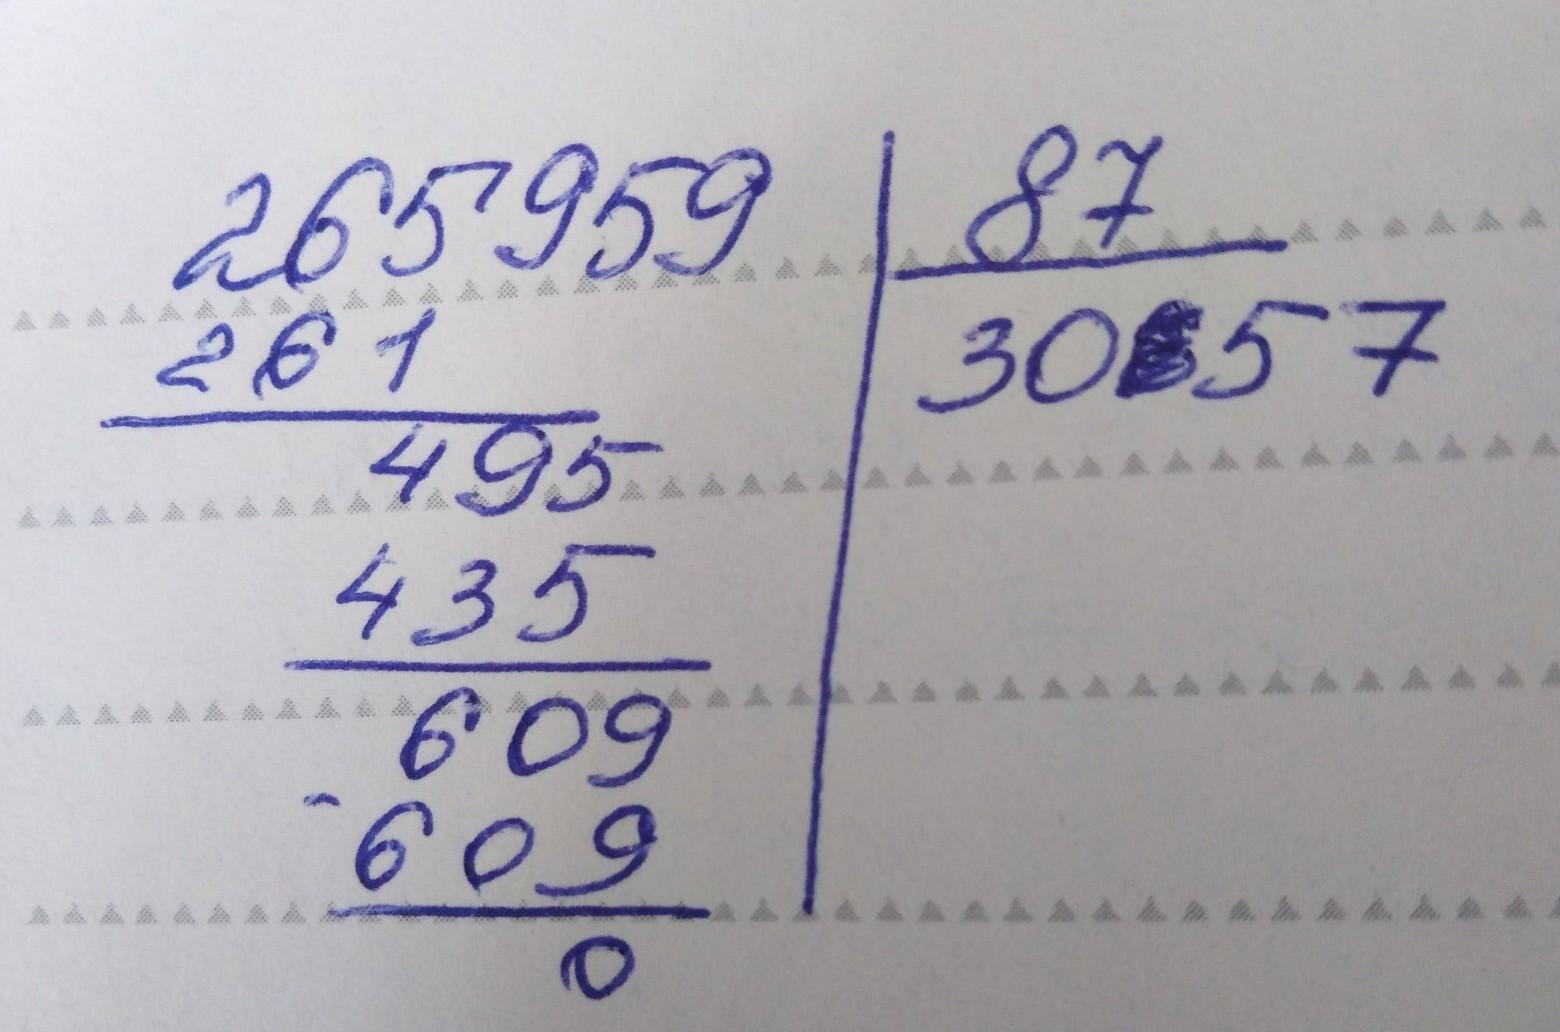 265959 87
261 3057
495
435
609
- 609
0